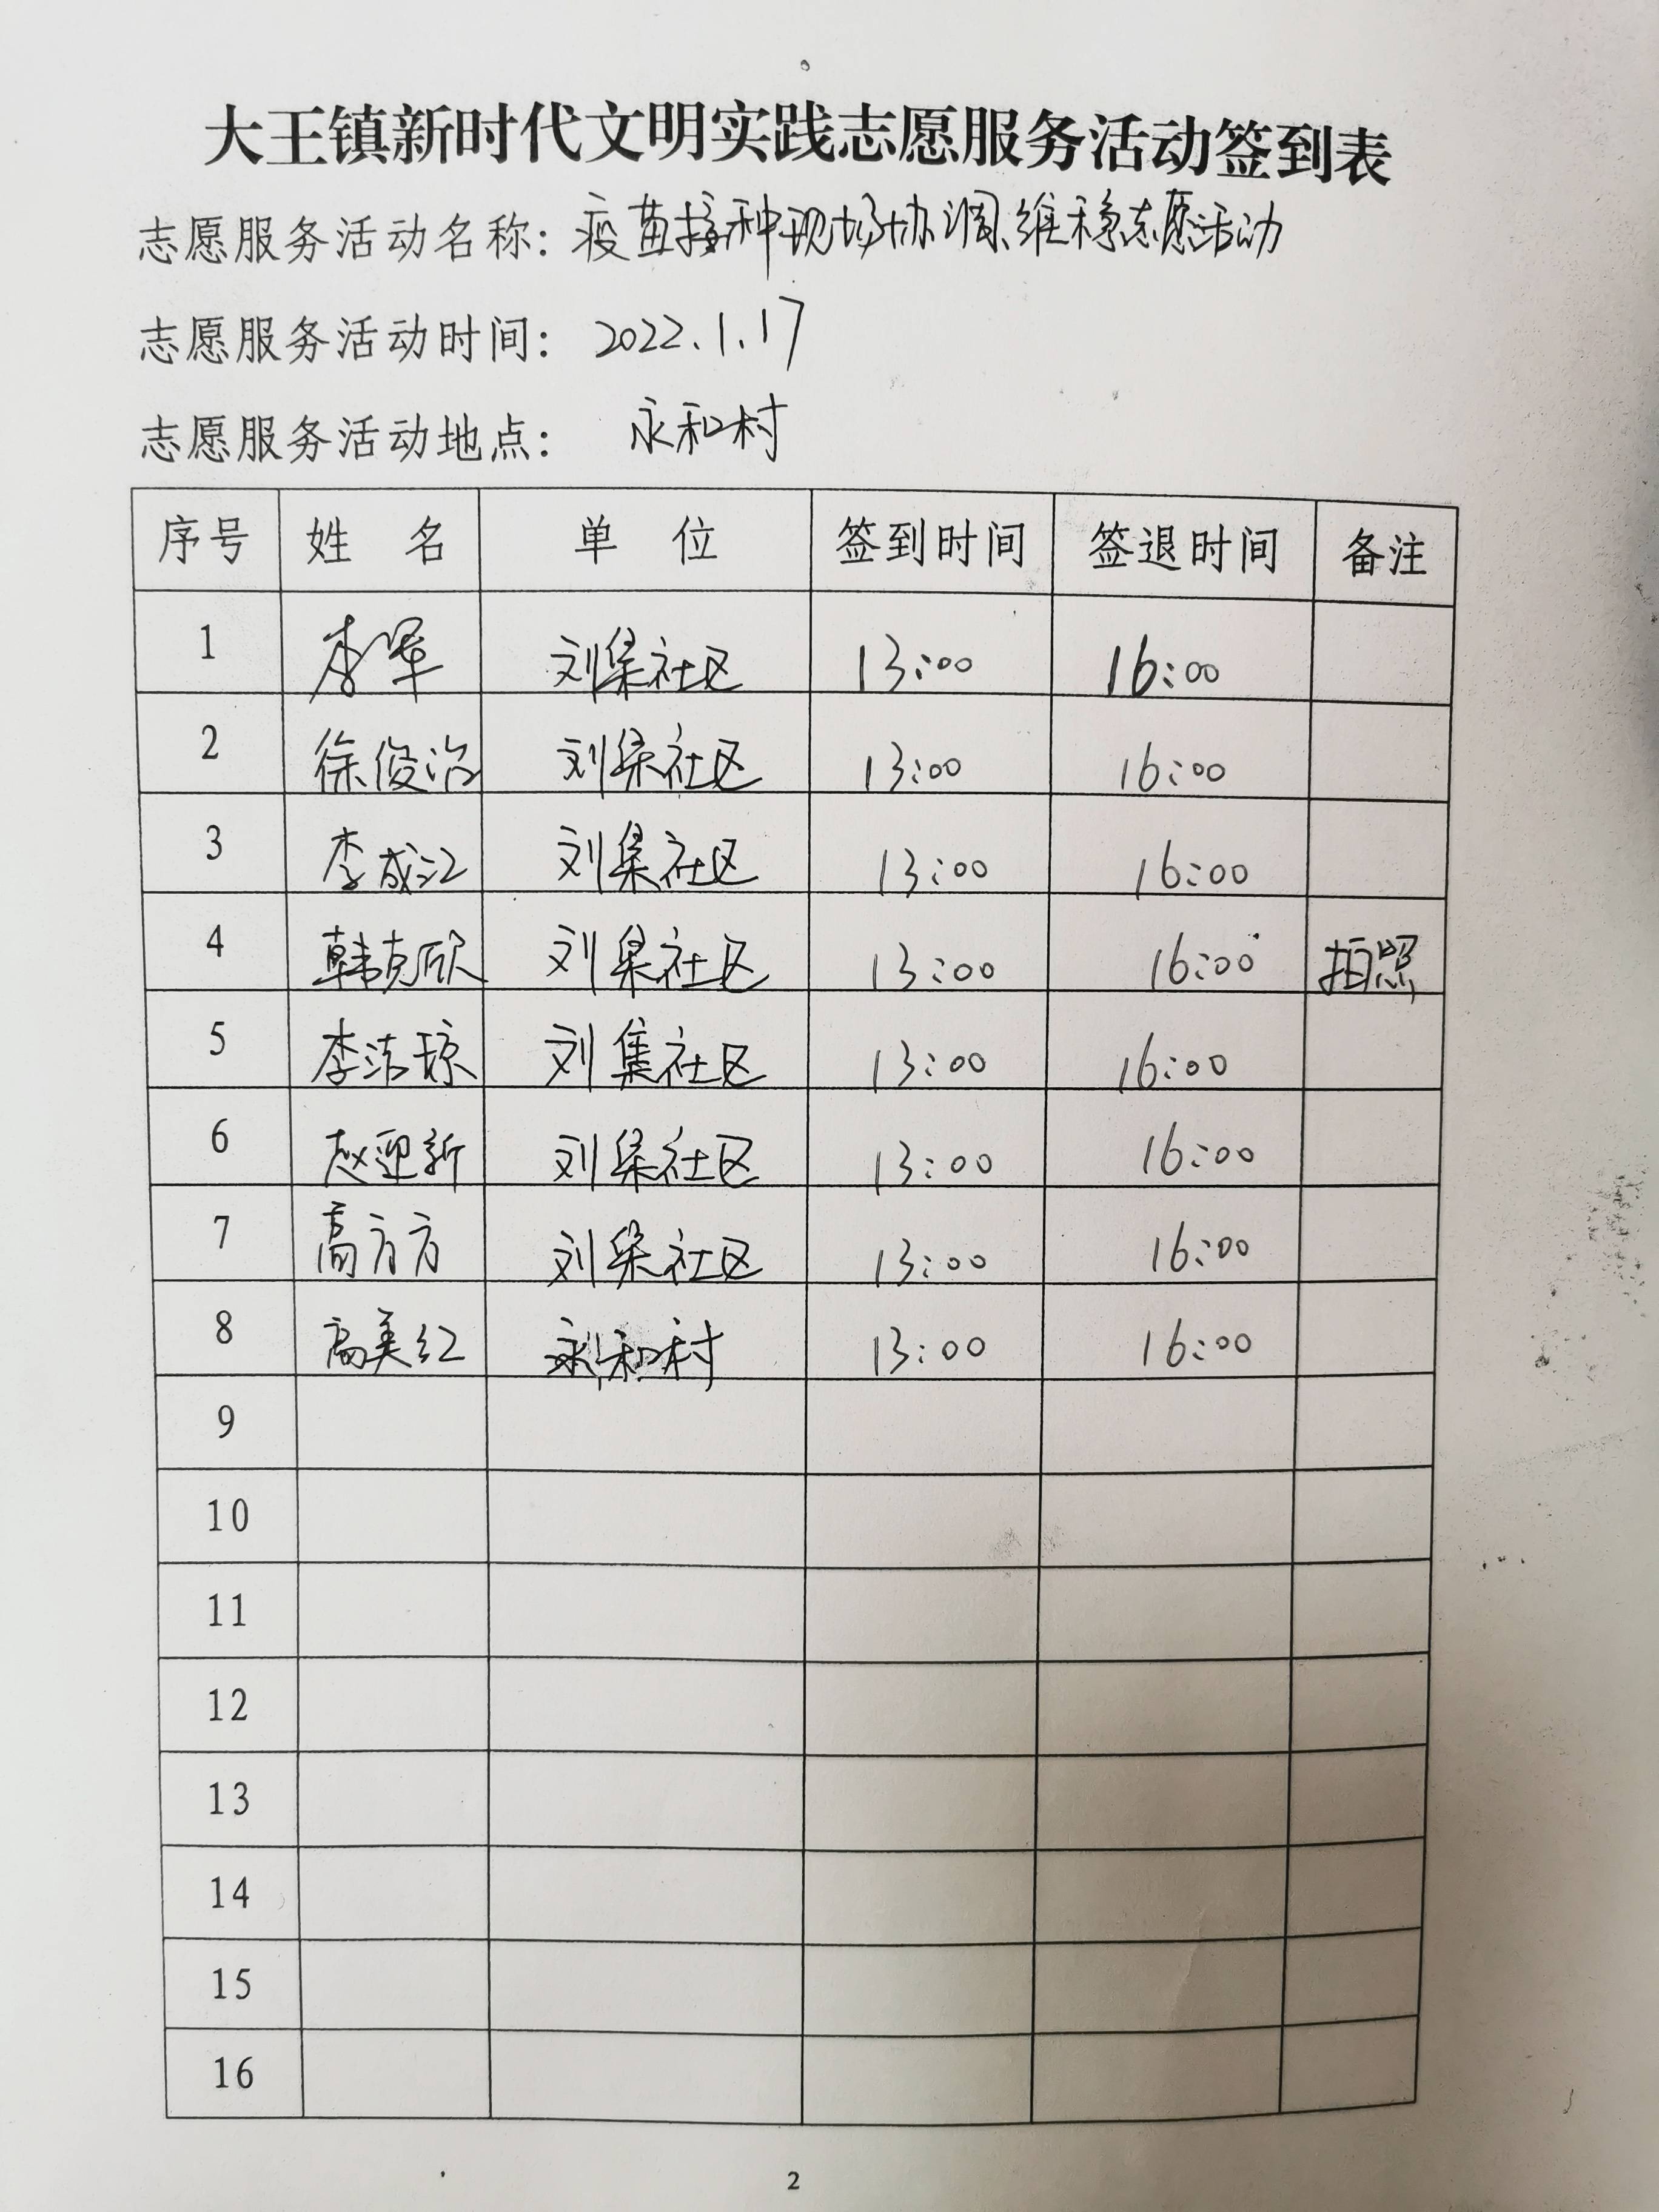 大王镇新时代文明实践志愿服务活动签到表
志愿服务活动名称: 疫苗接种现场协调、维稳志愿活动
志愿服务活动时间: 2022.1.17
志愿服务活动地点: 永和村
序号 姓 名 单 位 签到时间 签退时间 备注
1 李军 刘集社区 13:00 16:00
2 徐俊治 刘集社区 13:00 16:00
3 李成江 刘集社区 13:00 16:00
4 韩克欣 刘集社区 13:00 16:00 拍照
5 李洁琼 刘集社区 13:00 16:00
6 赵迎新 刘集社区 13:00 16:00
7 高方方 刘集社区 13:00 16:00
8 高美红 永和村 13:00 16:00
9
10
11
12
13
14
15
16
2